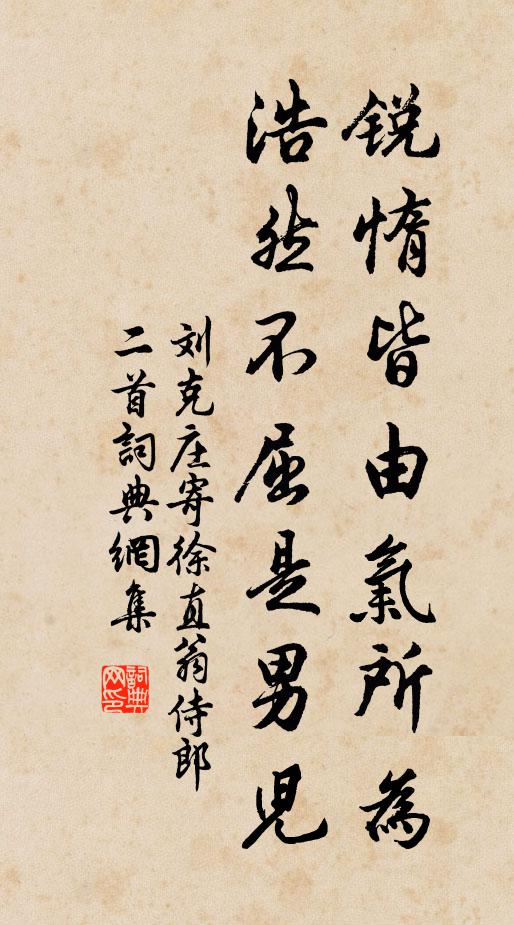 銳惰皆由氣所為
浩然不屈是男児
刘克庄寄徐直翁侍郎
二首詞典網集
詞典
网印